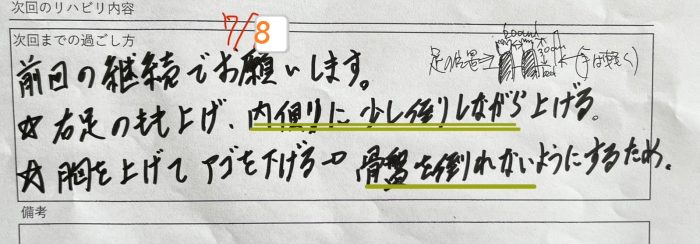 次回のリハビリ内容
7/8
次回までの過ごし方
足の位置→ ←(手は軽く)
20cm
30cm
前回の継続でお願いします。
☆右足のもも上げ、内側に少し倒りしながら上げる。
☆胸を上げてアゴを下げる→骨盤を倒れないようにするため。
備考